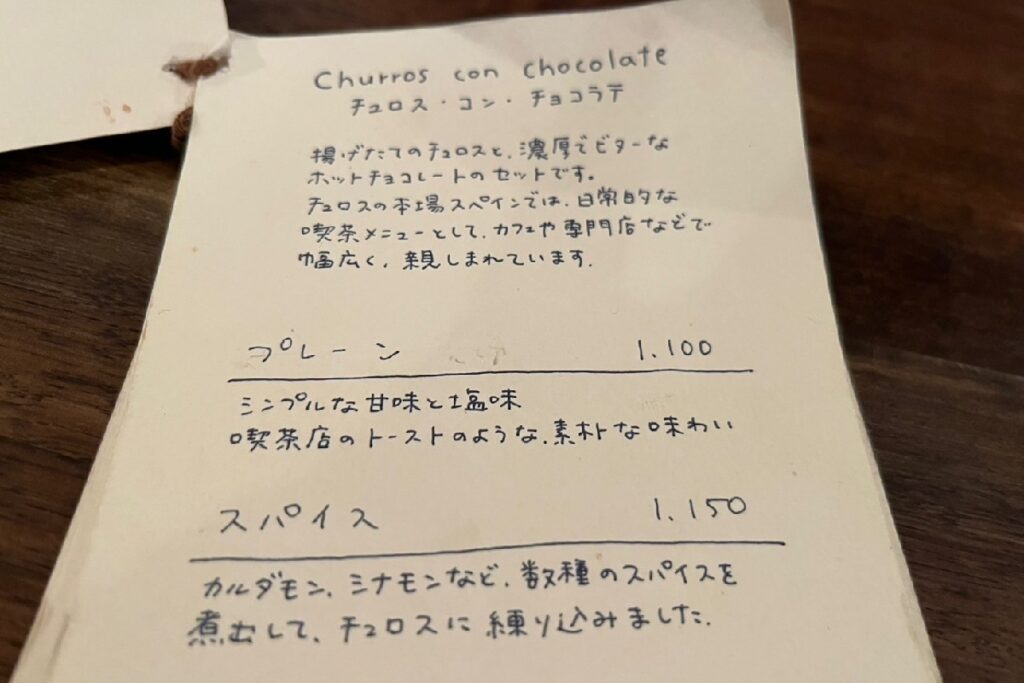 Churros con chocolate
チュロス・コン・チョコラテ
揚げたてのチュロスと、濃厚でビターな
ホットチョコレートのセットです。
チュロスの本場スペインでは、日常的な
喫茶メニューとして、カフェや専門店などで
幅広く、親しまれています。
プレーン 1.100
シンプルな甘味と塩味
喫茶店のトーストのような、素朴な味わい
スパイス 1.150
カルダモン、シナモンなど、数種のスパイスを
煮出して、チュロスに練り込みました。